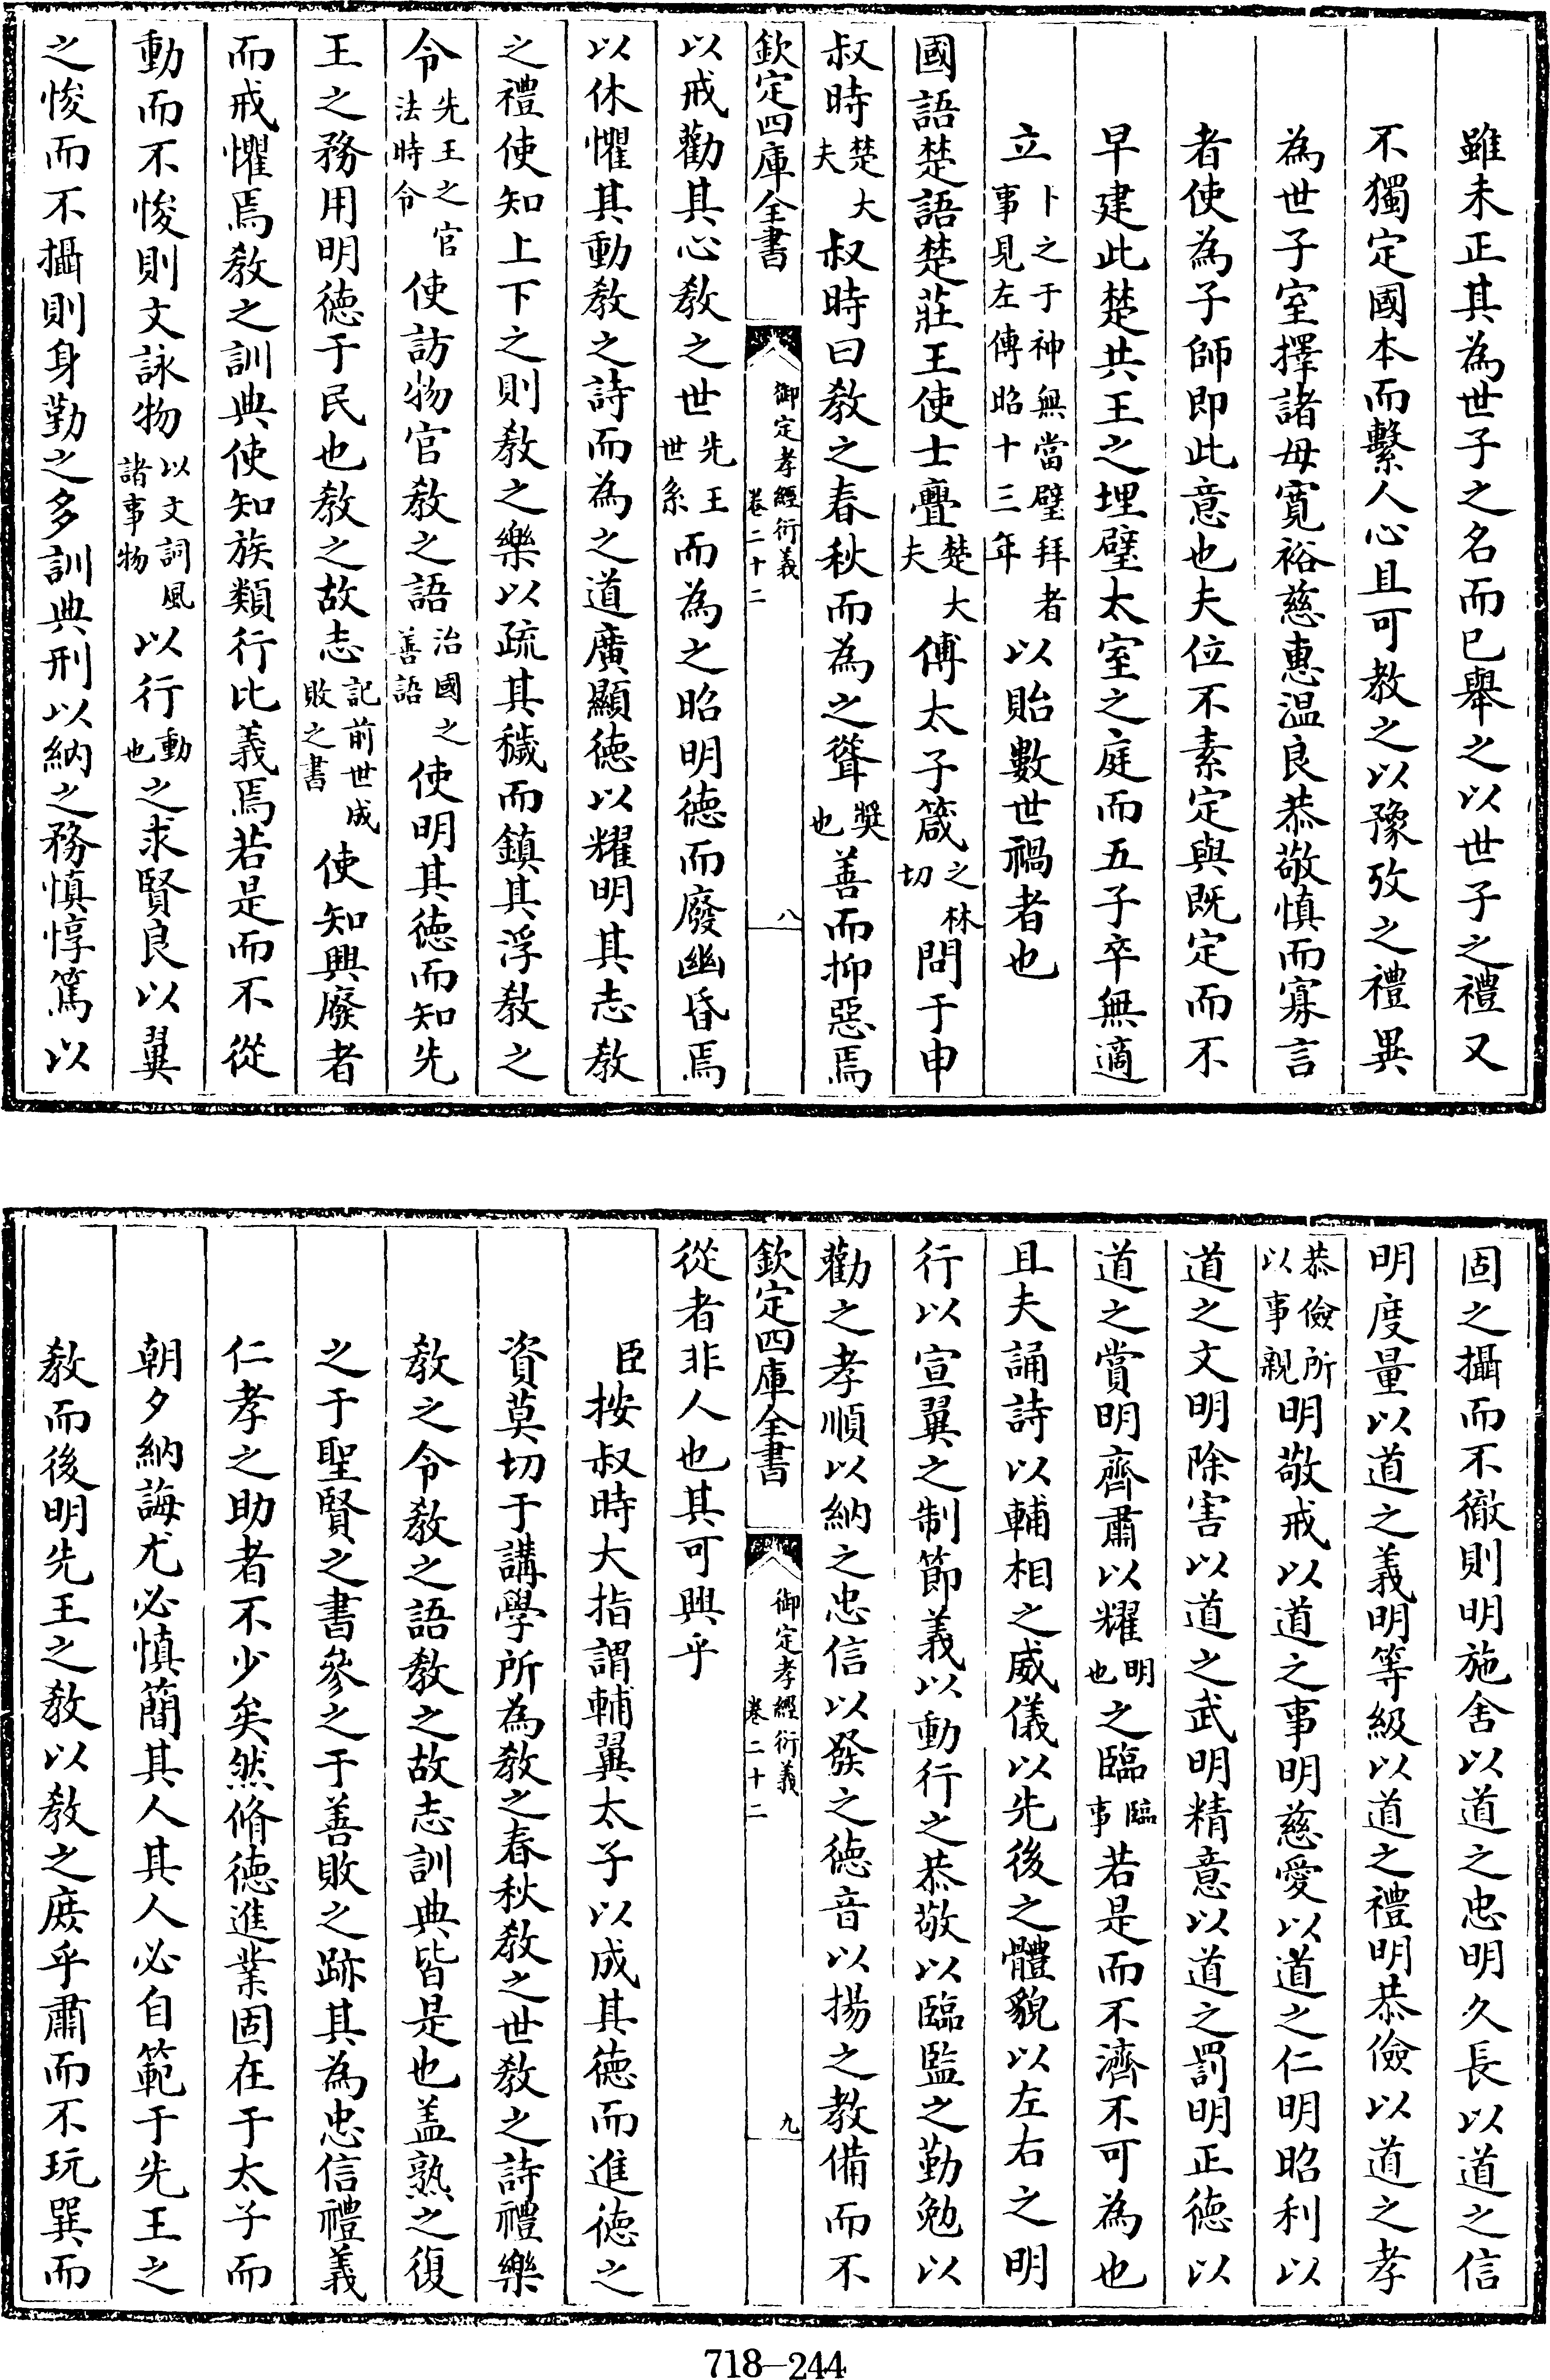 雖未正其為世子之名而已舉之以世子之禮又
不獨定國本而繫人心且可教之以豫攷之禮異
為世子室擇諸母寛裕慈惠温良恭敬慎而寡言
者使為子師即此意也夫位不素定與既定而不
早建此楚共王之埋璧太室之庭而五子卒無適
立卜之于神無當璧拜者事見左傳昭十三年以貽數世禍者也
國語楚語楚莊王使士亹楚大夫傅太子箴之林切問于申
叔時楚大夫叔時曰教之春秋而為之聳奬也善而抑惡焉
欽定四庫全書 御定孝經衍義 卷二十二 八
以戒勸其心教之世先王世系而為之昭明德而廢幽昏焉
以休懼其動教之詩而為之道廣顯德以耀明其志教
之禮使知上下之則教之樂以疏其穢而鎮其浮教之
令先王之官法時令使訪物官教之語治國之善語使明其德而知先
王之務用明德于民也教之故志記前世成敗之書使知興廢者
而戒懼焉教之訓典使知族類行比義焉若是而不從
動而不悛則文詠物以文詞風諸事物以行動也之求賢良以翼
之悛而不攝則身勤之多訓典刑以納之務慎惇篤以
固之攝而不徹則明施舍以道之忠明久長以道之信
明度量以道之義明等級以道之禮明恭儉以道之孝
恭儉所以事親明敬戒以道之事明慈愛以道之仁明昭利以
道之文明除害以道之武明精意以道之罰明正德以
道之賞明齊肅以耀明也之臨臨事若是而不濟不可為也
且夫誦詩以輔相之威儀以先後之體貌以左右之明
行以宣翼之制節義以動行之恭敬以臨監之勤勉以
勸之孝順以納之忠信以發之德音以揚之教備而不
欽定四庫全書 御定孝經衍義 卷二十二 九
從者非人也其可興乎
臣按叔時大指謂輔翼太子以成其德而進德之
資莫切于講學所為教之春秋教之世教之詩禮樂
教之令教之語教之故志訓典皆是也盖熟之復
之于聖賢之書參之于善敗之跡其為忠信禮義
仁孝之助者不少矣然脩德進業固在于太子而
朝夕納誨尤必慎簡其人其人必自範于先王之
教而後明先王之教以教之庻乎肅而不玩巽而
718—244